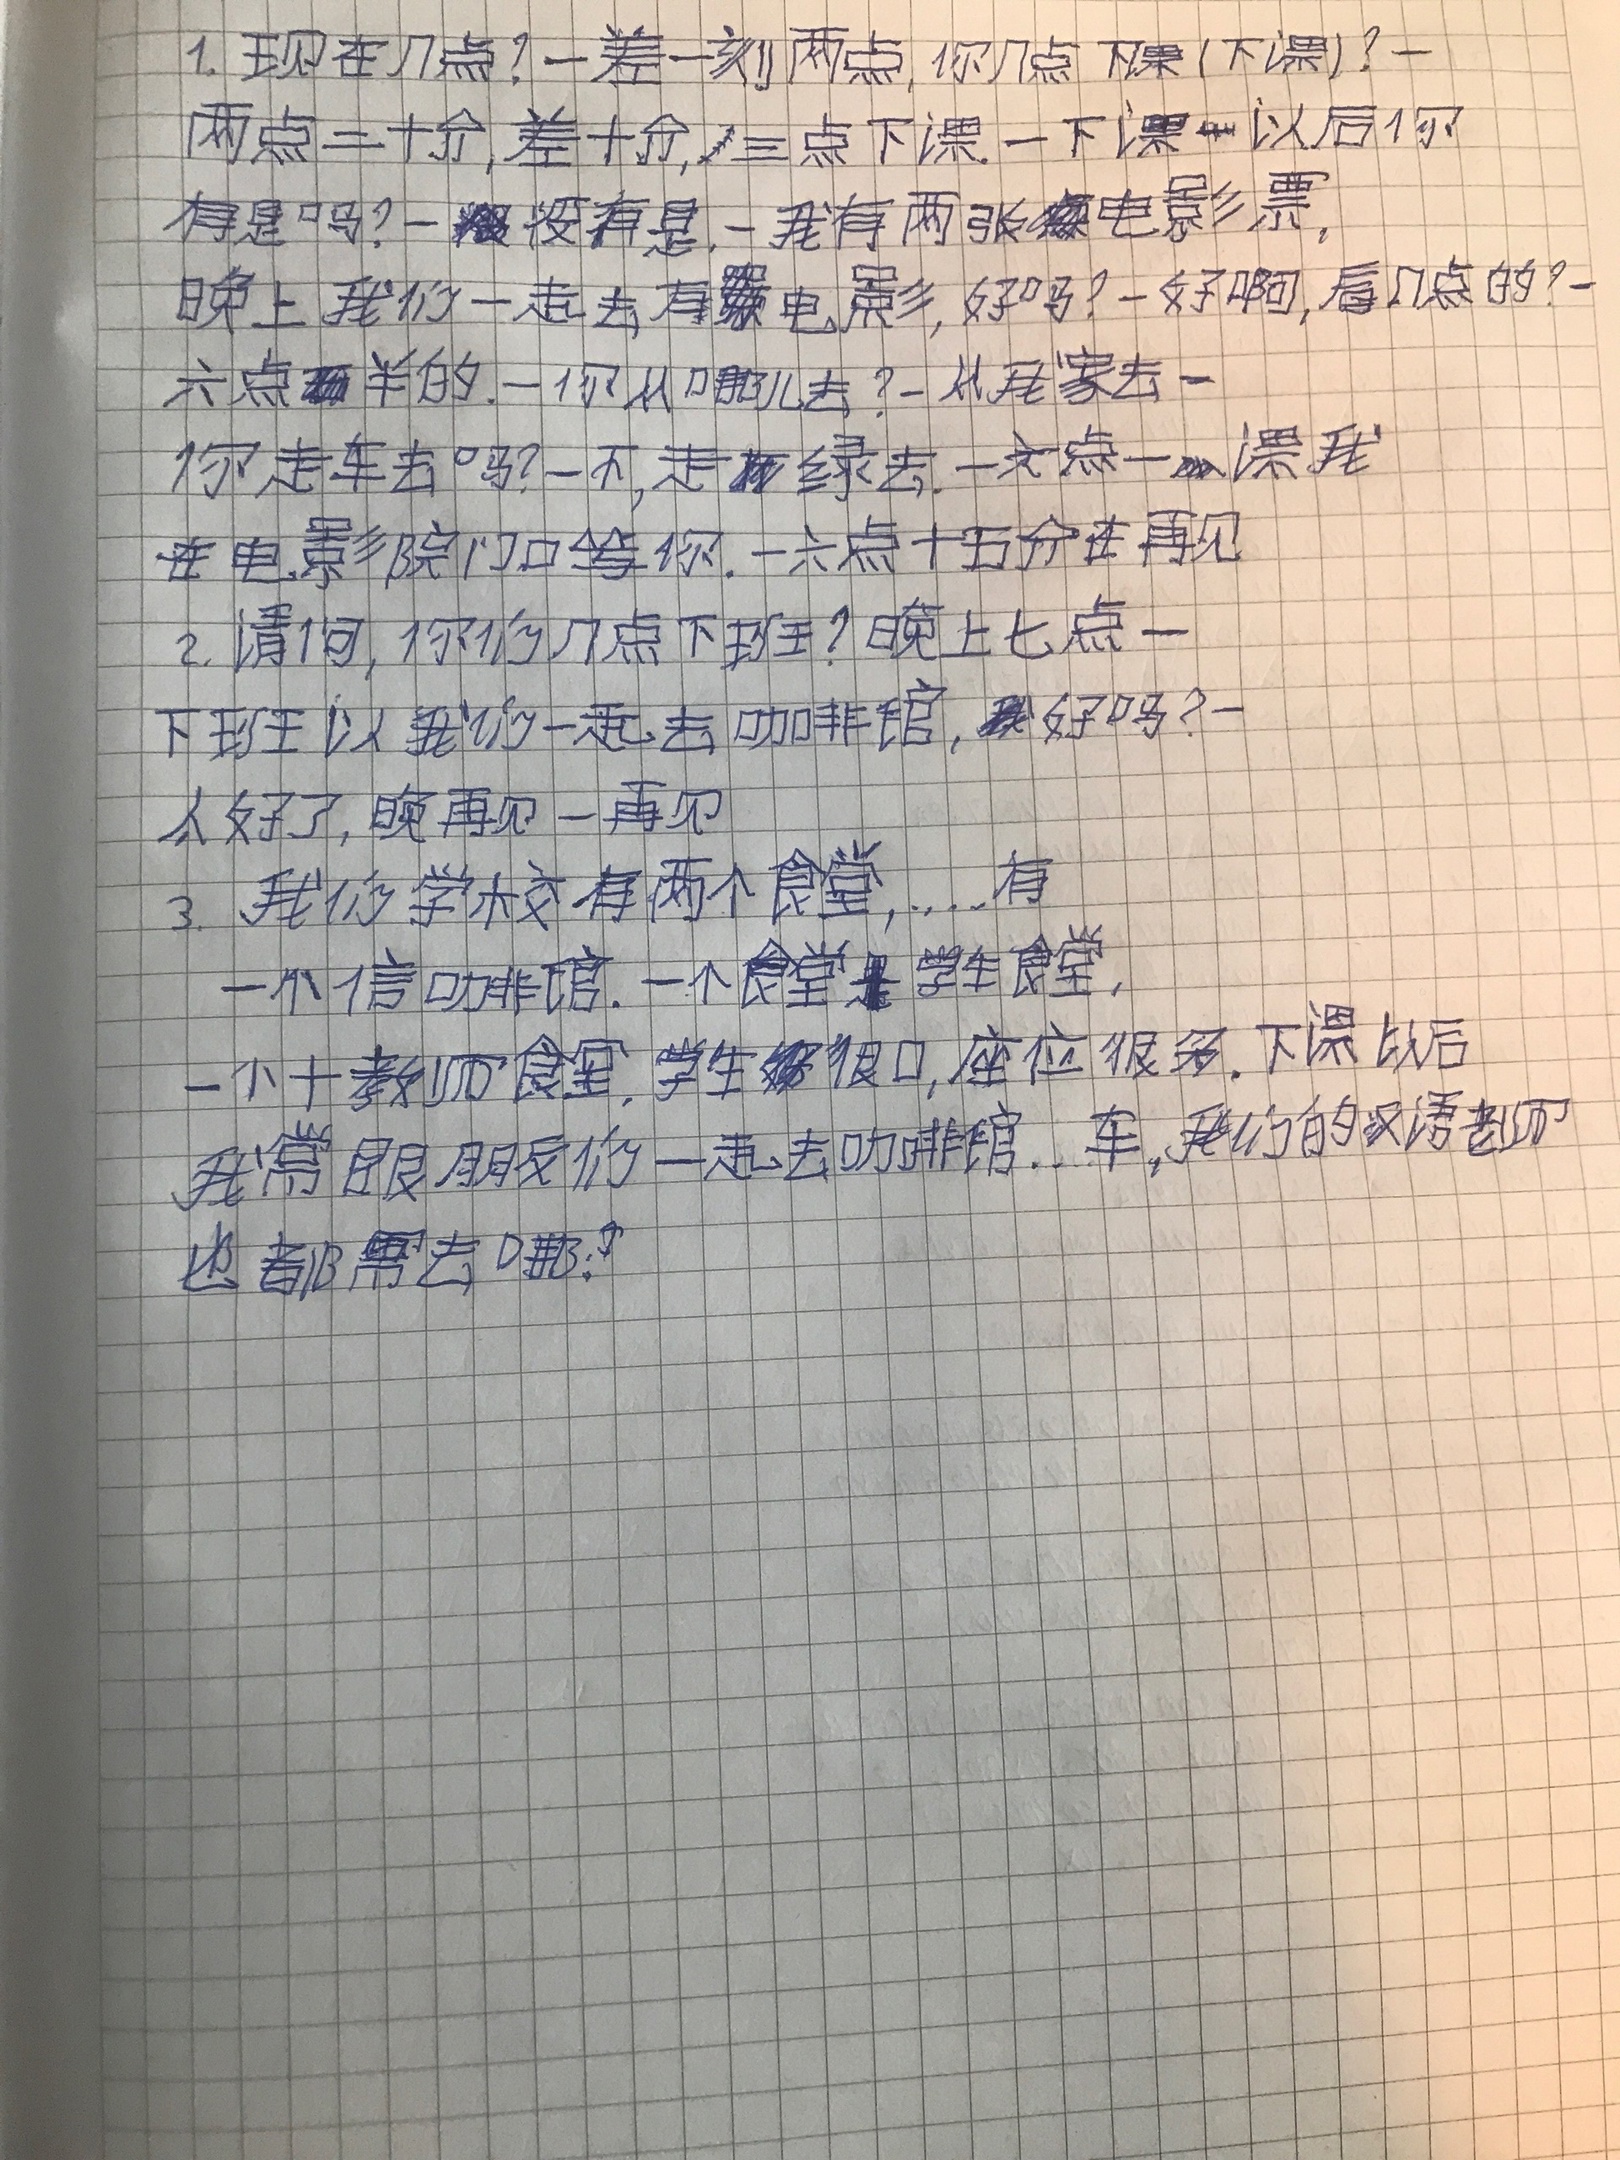 1. 现在几点? — 差一刻两点, 你几点下课 (下课)? —
两点二十分, 差十分, 三点下课. — 下课以后你
有是吗? — 没有是. — 我有两张电影票,
晚上我们一起去有电影, 好吗? — 好啊, 看几点的? —
六点半的. — 你从哪儿去? — 从我家去 —
你走车去吗? — 不, 走绿去. — 六点一课我
在电影院门口等你. — 六点十五分在再见
2. 请问, 你们几点下班? 晚上七点 —
下班以我们一起去咖啡馆, 好吗? —
太好了, 晚再见 — 再见
3. 我们学校有两个食堂, ..... 有
一个信咖啡馆. 一个食堂是学生食堂,
一个十教师食堂. 学生很口, 座位很多. 下课以后
我常跟朋友们一起去咖啡馆... 车, 我们的汉语老师
也都常去哪?